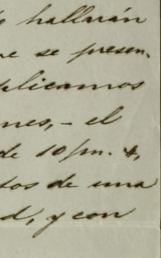 hallarán
se presen-
plicamos
nes, – el
de 10 pm. &,
tos de una
d, y con